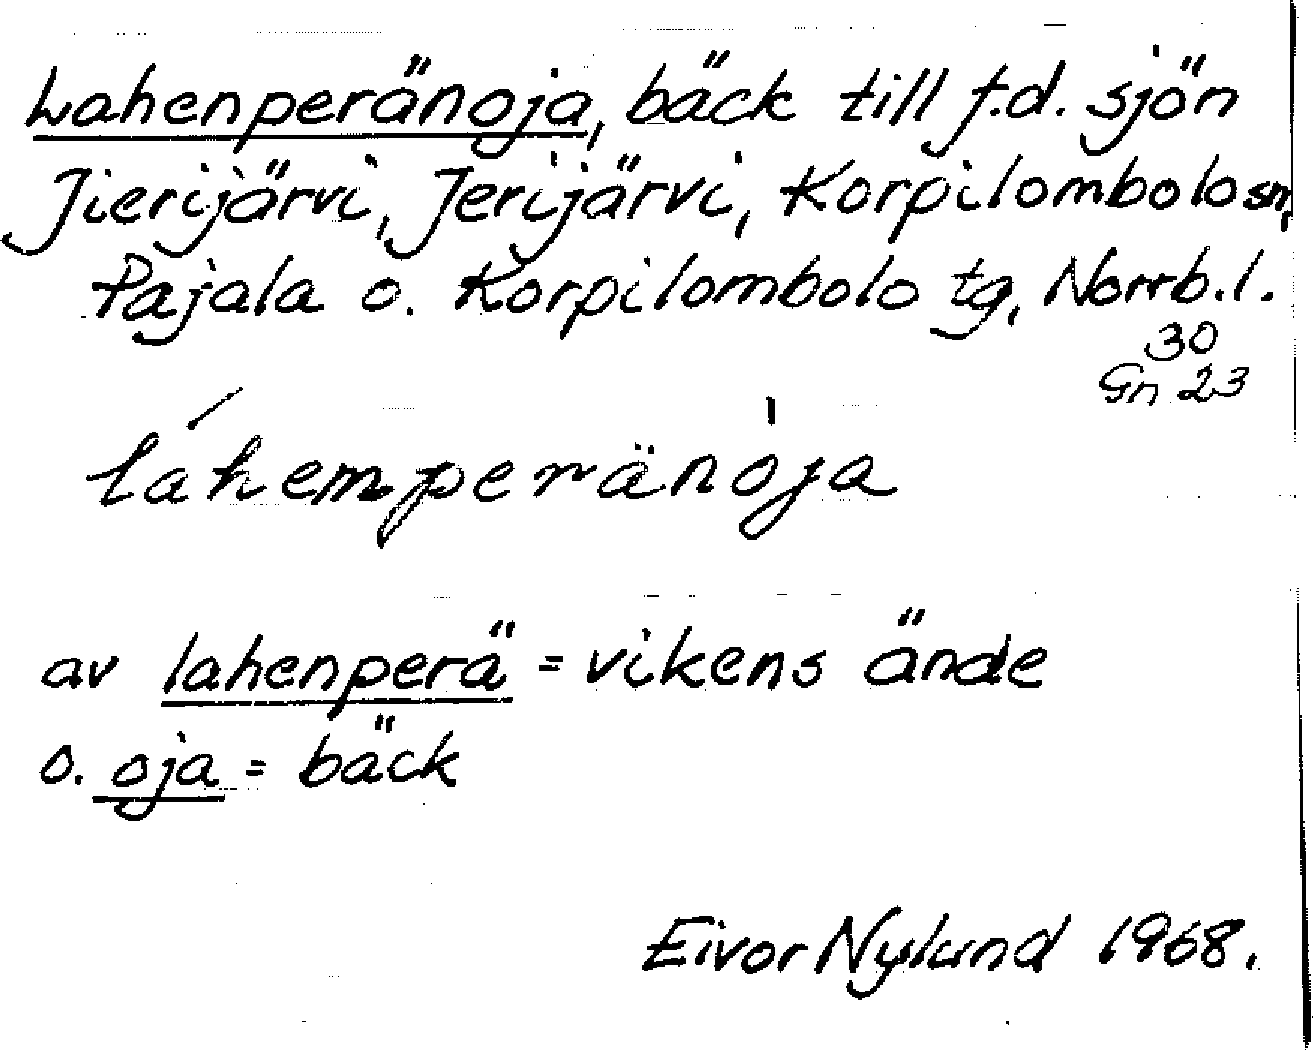 Lahenperänoja, bäck till f.d. sjön
Jierijärvi, Jerijärvi, Korpilombolo sn,
Pajala o. Korpilombolo tg, Norrb. l.
30
Gn 23
láhemperänòja
av lahenperä = vikens ände
o. oja = bäck
Eivor Nylund 1968.